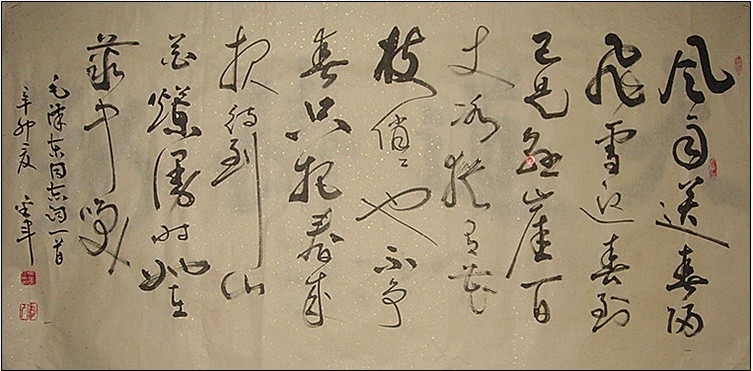 风雨送春归
飛雪迎春到
已是悬崖百
丈冰犹有花
枝俏〻也不争
春只把春来
报待到山
花爛漫时她在
丛中笑
毛泽东同志词一首
辛卯夏